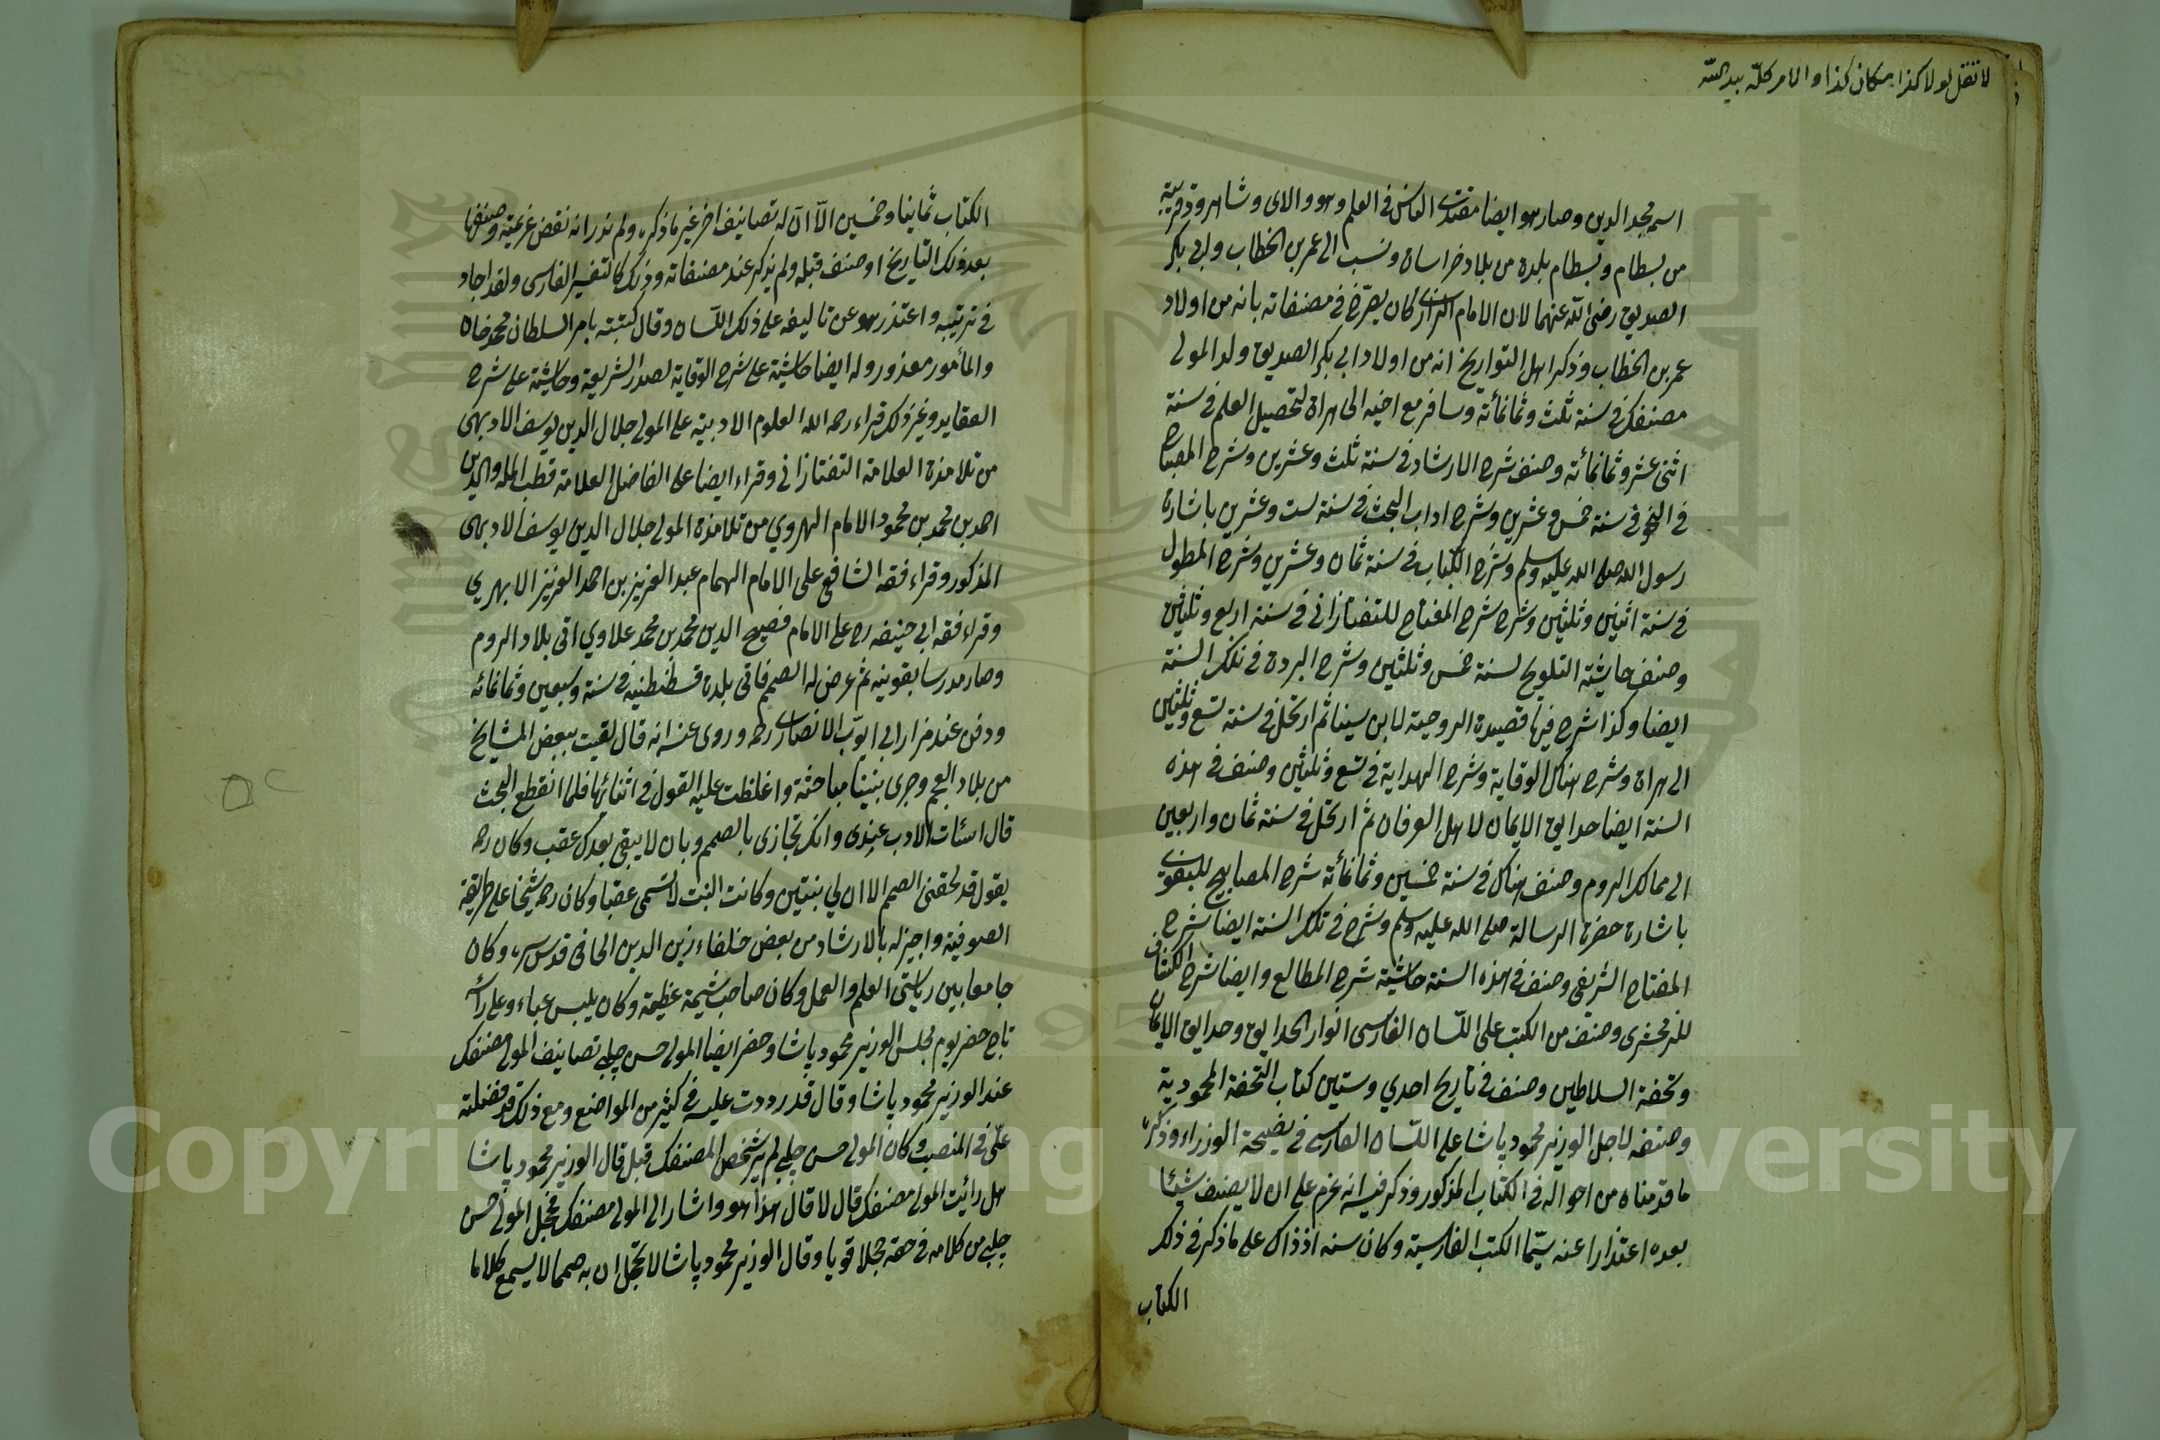 لا تقل لولا كذا مكان كذا والامر كله بيد الله
اسمه مجد الدين وصار هو ايضا مقتدى الناس في العلم وهو والاى وشاهرود قرية
من بسطام وبسطام بلدة من بلاد خراسان ونسب الى عمر بن الخطاب ولابى بكر
الصديق رضى الله عنهما لان الامام الرازى كان يصرح في مصنفاته بانه من اولاد
عمر بن الخطاب وذكر اهل التواريخ انه من اولاد ابى بكر الصديق ولد المولى
مصنفك في سنة ثلث وثمانمائة وسافر مع اخيه الى هراة لتحصيل العلم في سنة
اثنى عشر وثمانمائة وصنف شرح الارشاد في سنة ثلث وعشرين وشرح المصباح
في النحو في سنة خمس وعشرين وشرح اداب البحث في سنة ست وعشرين باشارة
رسول الله صلى الله عليه وسلم وشرح اللباب في سنة ثمان وعشرين وشرح المطول
في سنة اثنين وثلثين وشرح شرح المفتاح للتفتازانى في سنة اربع وثلثين
وصنف حاشية التلويح لسنة خمس وثلثين وشرح البردة في تلك السنة
ايضا وكذا شرح فيها قصيدة الروحية لابن سينا ثم ارتحل في سنة تسع وثلثين
الى هراة وشرح هناك الوقاية وشرح الهداية في تسع وثلثين وصنف في هذه
السنة ايضا حدايق الايمان لاهل العرفان ثم ارتحل في سنة ثمان واربعين
الى ممالك الروم وصنف هناك في سنة خمسين وثمانمائة شرح المصابيح للبغوى
باشارة حضرة الرسالة صلى الله عليه وسلم وشرح في تلك السنة ايضا شرح
المفتاح الشريفى وصنف في هذه السنة حاشية شرح المطالع وايضا شرح الكشاف
للزمخشرى وصنف من الكتب على اللسان الفارسى انوار الحدايق وحدايق الايمان
وتحفة السلاطين وصنف في تاريخ احدي وستين كتاب التحفة المحمودية
وصنفه لاجل الوزير محمود پاشا على اللسان الفارسى في نصيحة الوزراء وذكره
ما قدمناه من احواله في الكتاب المذكور وذكر فيه انه عزم على ان لا يصنف شيئا
بعده اعتذارا عنه سيما الكتب الفارسية وكان سنه اذ ذاك على ما ذكر في ذلك
الكتاب
الكتاب ثمانيا وخمسين الا ان له تصانيف اخر غير ما ذكره ولم ندر انه نقض عزيمته وصنفها
بعد ذلك التاريخ او صنف قبله ولم يذكر عند مصنفاته وذلك كالتفسير الفارسى ولقد اجاد
في ترتيبه واعتذر هو عن تاليفه على ذلك اللسان وقال كتبته بامر السلطان محمد خان
والمأمور معذور وله ايضا حاشية على شرح الوقاية لصدر الشريعة وحاشية على شرح
العقايد وغير ذلك قراء رحمه الله العلوم الادبية على المولى جلال الدين يوسف الاوبهى
من تلامذة العلامة التفتازانى وقراء ايضا على الفاضل العلامة قطب المله والدين
احمد بن محمد بن محمود الامام الهروي من تلامذة المولى جلال الدين يوسف الاوبهى
المذكور وقراء فقه الشافعى على الامام الهمام عبد العزيز بن احمد العزيز الابهري
وقراء فقه ابى حنيفه ره على الامام فصيح الدين محمد بن محمد علاوي اتى بلاد الروم
وصار مدرسا بقونيه ثم عرض له الصمم فاتى بلدة قسطنطنيه في سنة وسبعين وثمانمائه
ودفن عند مزار ابى ايوب الانصارى رحمه وروى عنه انه قال لقيت ببعض المشايخ
من بلاد العجم وجرى بيننا مباحثة واغلظت عليه القول في اثنائها فلما انقطع البحث
قال اسئات الادب عندى وانك تجازى بالصمم وبان لا يبقى بعدك عقب وكان رحمه
يقول قد لحقنى الصمم الا ان لي بنتين وكانت البنت لا تسمى عقبا وكان رحمه شيخا على طريقة
الصوفية واجيز له بالارشاد من بعض خلفاء زين الدين الخافى قدس سره وكان
جامعا بين رياستى العلم والعمل وكان صاحب شيمة عظيمة وكان يلبس عباء وعلى راسه
تاج حضر يوم مجلس الوزير محمود پاشا وحضر ايضا المولى حسن چلبى تصانيف المولى مصنفك
عند الوزير محمود پاشا وقال قد رددت عليه في كثير من المواضع ومع ذلك قد فضلته
على في المنصب وكان المولى حسن چلبى لم ير شخص المصنفك قبل قال الوزير محمود پاشا
هل رائيت المولى مصنفك قال لا قال هذا هو واشار الى المولى مصنفك فخجل المولى حسن
چلبى من كلامه في حقه خجلا قويا وقال الوزير محمود پاشا لا تخجل ان به صمما لا يسمع كلاما
Copyright © King Saud University